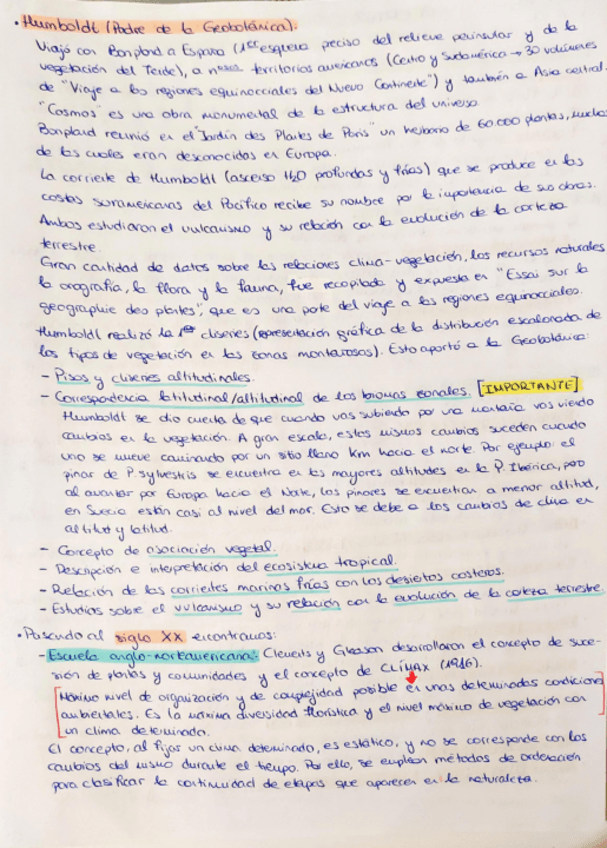 • Humboldt (Padre de la Geobotánica):
Viajó con Bonpland a España (1er esquema preciso del relieve peninsular y de la
vegetación del Teide), a nuevos territorios americanos (Centro y Sudamérica → 30 volúmenes
de "Viaje a las regiones equinocciales del Nuevo Continente") y también a Asia central.
"Cosmos" es una obra monumental de la estructura del universo.
Bonpland reunió en el "Jardín des Plantes de París" un herbario de 60.000 plantas, muchas
de las cuales eran desconocidas en Europa.
La corriente de Humboldt (ascenso H2O profundas y frías) que se produce en las
costas suramericanas del Pacífico recibe su nombre por la importancia de sus obras.
Ambos estudiaron el vulcanismo y su relación con la evolución de la corteza
terrestre.
Gran cantidad de datos sobre las relaciones clima-vegetación, los recursos naturales
la orografía, la flora y la fauna, fue recopilada y expuesta en "Essai sur la
geographie des plantes", que es una parte del viaje a las regiones equinocciales.
Humboldt realizó la 1era cliseries (representación gráfica de la distribución escalonada de
los tipos de vegetación en las zonas montañosas). Esto aportó a la Geobotánica:
- Pisos y cliseries altitudinales.
- Correspondencia latitudinal/altitudinal de los biomas zonales. [IMPORTANTE]
Humboldt se dio cuenta de que cuando vas subiendo por una montaña vas viendo
cambios en la vegetación. A gran escala, estos mismos cambios suceden cuando
uno se mueve caminando por un sitio llano km hacia el norte. Por ejemplo: el
pinar de P. sylvestris se encuentra en las mayores altitudes en la P. Ibérica, pero
al avanzar por Europa hacia el Norte, los pinares se encuentran a menor altitud,
en Suecia están casi al nivel del mar. Esto se debe a los cambios de clima en
altitud y latitud.
- Concepto de asociación vegetal.
- Descripción e interpretación del ecosistema tropical.
- Relación de las corrientes marinas frías con los desiertos costeros.
- Estudios sobre el vulcanismo y su relación con la evolución de la corteza terrestre.
• Pasando al siglo XX encontramos:
- Escuela anglo-norteamericana: Clements y Gleason desarrollaron el concepto de suce-
sión de plantas y comunidades y el concepto de CLÍMAX (1916).
Máximo nivel de organización y de complejidad posible en unas determinadas condiciones
ambientales. Es la máxima diversidad florística y el nivel máximo de vegetación con
un clima determinado.
El concepto, al fijar un clima determinado, es estático, y no se corresponde con los
cambios del mismo durante el tiempo. Por ello, se emplean métodos de ordenación
para clasificar la continuidad de etapas que aparecen en la naturaleza.